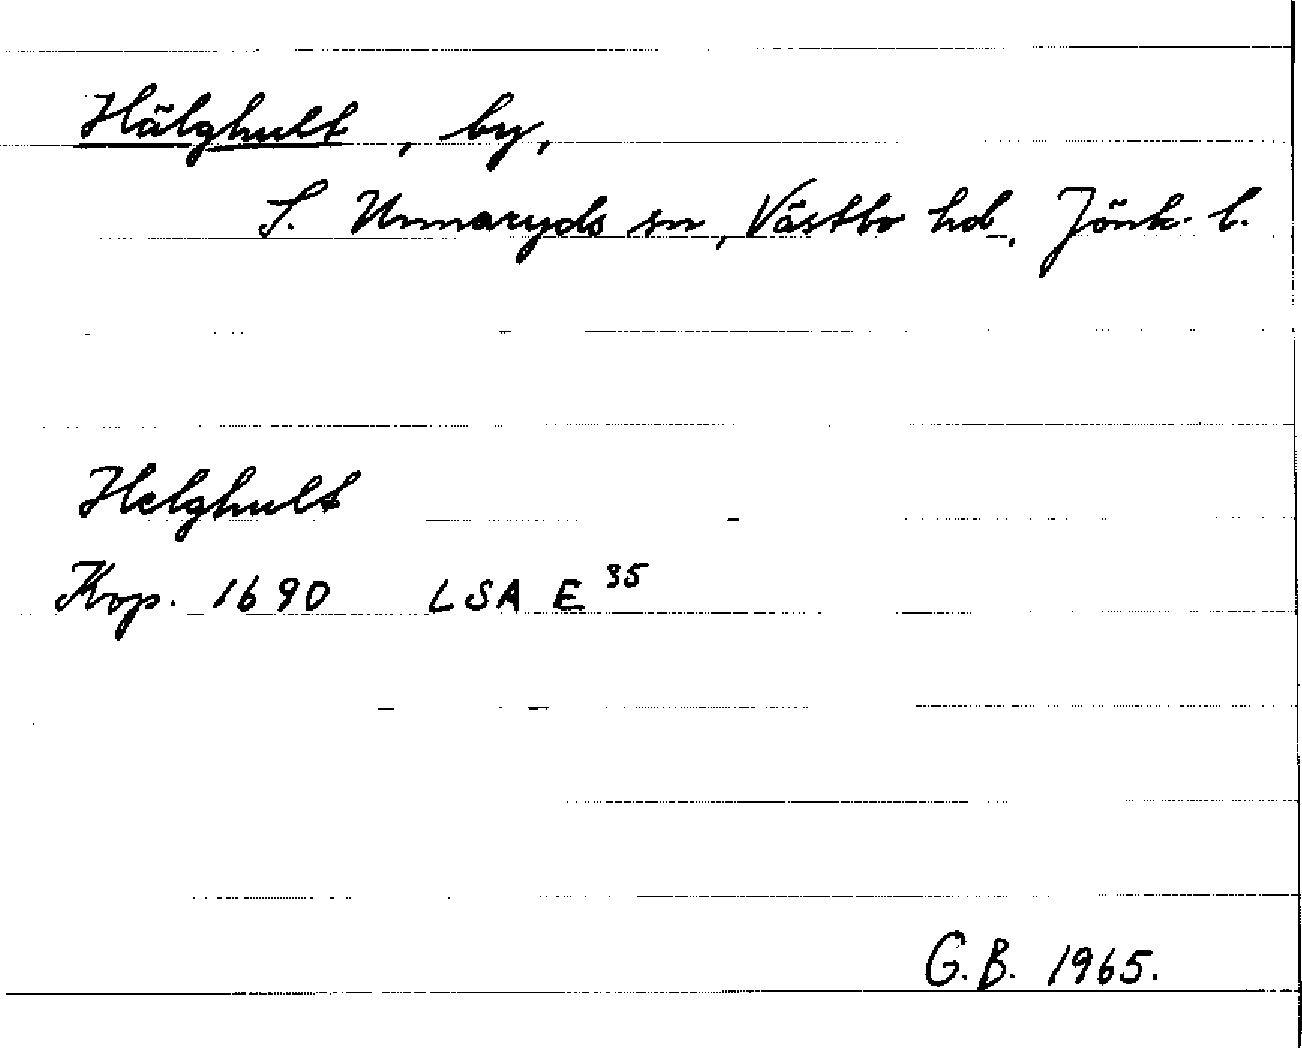 Hälghult, by,
S. Unnaryds sn, Västbo hd, Jönk. l.
Helghult
Kop. 1690 LSA E 35
G.B. 1965.